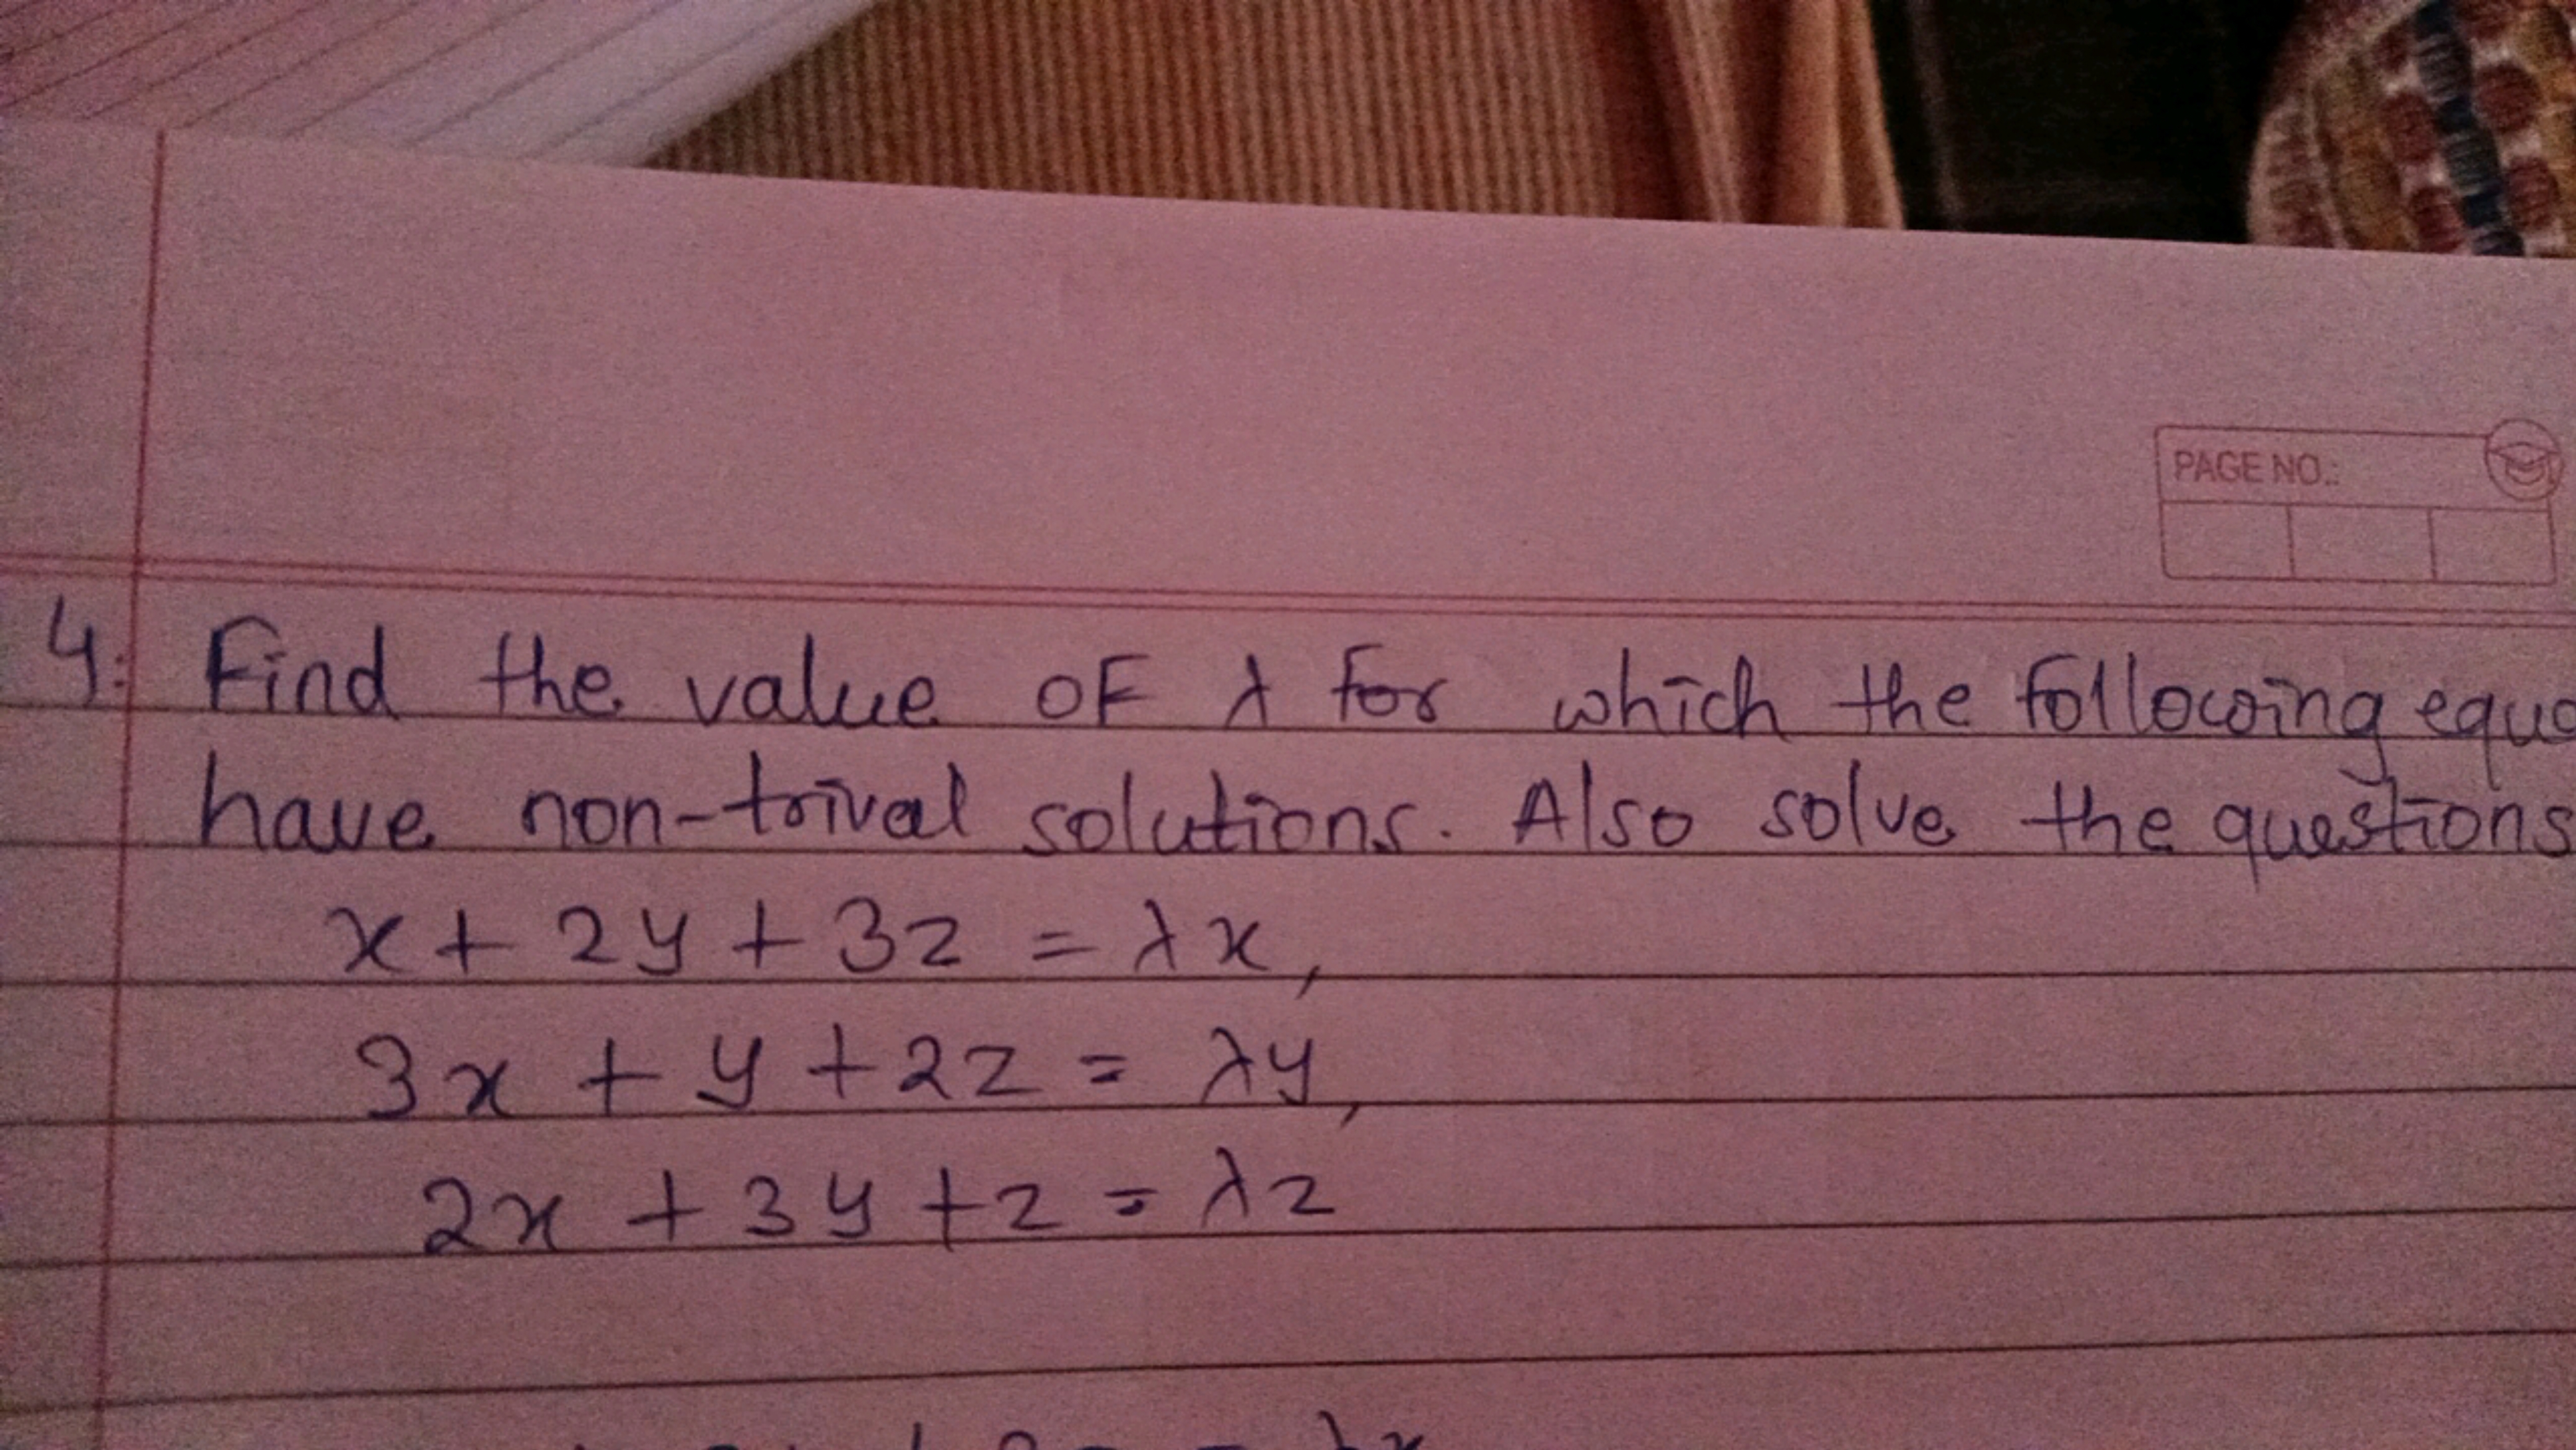 PAGE NO.:
4. Find the value of λ for which the following equa
have non-trival solutions. Also solve the questions
x + 2y + 3z = λx,
3x + y + 2z = λy,
2x + 3y + z = λz